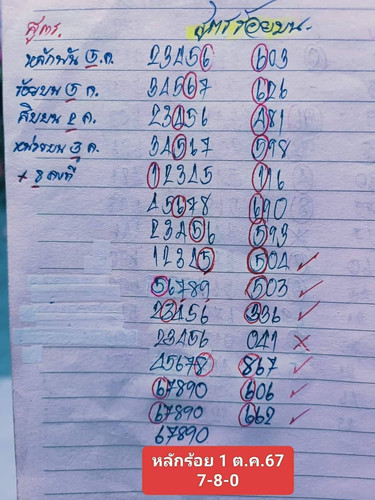 สูตร. สูตรร้อยบน.
หลักพัน 5 ก. 23456 603
ร้อยบน 5 ก. 34567 626
สิบบน 2 ก. 23456 481
หน่วยบน 3 ก. 34567 598
+ 8 คงที่ 12345 116
45678 690
23456 593
12345 504 ✓
56789 503 ✓
23456 336 ✓
23456 041 ✗
45678 867 ✓
67890 606 ✓
67890 662 ✓
67890
หลักร้อย 1 ต.ค.67
7-8-0